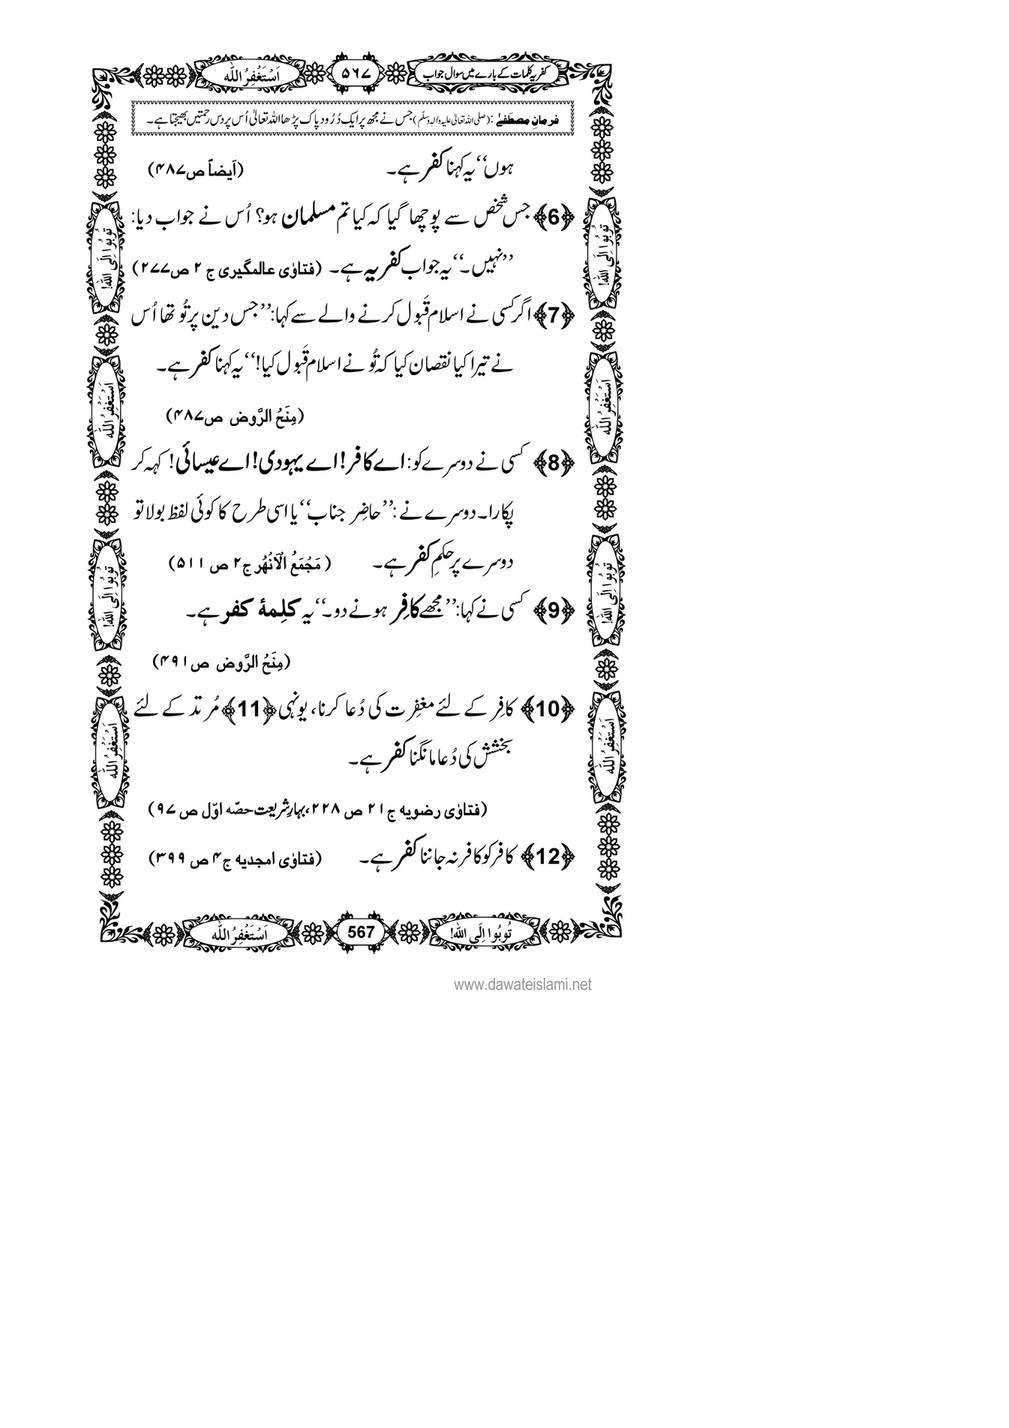 کفریہ کلمات کے بارے میں سوال جواب
۵۶۷
اَسْتَغْفِرُ اللہ
فرمانِ مصطفےٰ : (صلی اللہ تعالیٰ علیہ والہ وسلّم) جس نے مجھ پر ایک دُرُود پاک پڑھا اللہ تعالیٰ اُس پر دس رحمتیں بھیجتا ہے۔
ہوں‘‘ یہ کہنا کفر ہے۔ (اَیضاً ص۴۸۷)
﴿6﴾ جس شخص سے پوچھا گیا کہ کیا تم مسلمان ہو؟ اُس نے جواب دیا:
’’نہیں۔‘‘ یہ جواب کفریہ ہے۔ (فتاوٰی عالمگیری ج ۲ ص۲۷۷)
﴿7﴾ اگر کسی نے اسلام قَبول کرنے والے سے کہا: ’’جس دین پر تُو تھا اُس
نے تیرا کیا نقصان کیا کہ تُو نے اسلام قَبول کیا!‘‘ یہ کہنا کفر ہے۔
(مِنَحُ الرَّوض ص۴۸۷)
﴿8﴾ کسی نے دوسرے کو: اے کافر! اے یہودی! اے عیسائی! کہہ کر
پکارا۔ دوسرے نے: ’’حاضِر جناب‘‘ یا اسی طرح کا کوئی لفظ بولا تو
دوسرے پر حکمِ کفر ہے۔ (مَجْمَعُ الْاَنْهُر ج۲ ص ۵۱۱)
﴿9﴾ کسی نے کہا: ’’مجھے کافِر ہونے دو۔‘‘ یہ کلِمۂ کفر ہے۔
(مِنَحُ الرَّوض ص۴۹۱)
﴿10﴾ کافِر کے لئے مغفِرت کی دُعا کرنا، یونہی ﴿11﴾ مُرتد کے لئے
بخشش کی دُعا مانگنا کفر ہے۔
(فتاوٰی رضویه ج۲۱ ص ۲۲۸، بہارِ شریعت حصّہ اوّل ص ۹۷)
﴿12﴾ کافر کو کافر نہ جاننا کفر ہے۔ (فتاوٰی امجدیه ج۴ ص ۳۹۹)
تُوبُوا اِلَی اللہ!
اَسْتَغْفِرُ اللہ
تُوبُوا اِلَی اللہ!
اَسْتَغْفِرُ اللہ
تُوبُوا اِلَی اللہ!
اَسْتَغْفِرُ اللہ
تُوبُوا اِلَی اللہ!
اَسْتَغْفِرُ اللہ
تُوبُوا اِلَی اللہ!
567
اَسْتَغْفِرُ اللہ
www.dawateislami.net